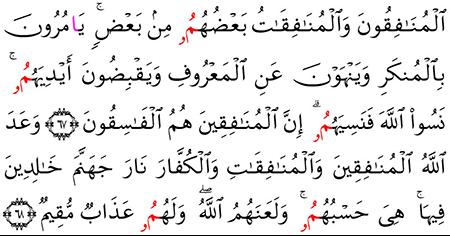 ٱلْمُنَٰفِقُونَ وَٱلْمُنَٰفِقَٰتُ بَعْضُهُمُۥ مِنۢ بَعْضٖۚ يَامُرُونَ
بِٱلْمُنكَرِ وَيَنْهَوْنَ عَنِ ٱلْمَعْرُوفِ وَيَقْبِضُونَ أَيْدِيَهُمُۥۚ
نَسُواْ ٱللَّهَ فَنَسِيَهُمُۥۗ إِنَّ ٱلْمُنَٰفِقِينَ هُمُ ٱلْفَٰسِقُونَ ٦٧ وَعَدَ
ٱللَّهُ ٱلْمُنَٰفِقِينَ وَٱلْمُنَٰفِقَٰتِ وَٱلْكُفَّارَ نَارَ جَهَنَّمَ خَٰلِدِينَ
فِيهَاۚ هِيَ حَسْبُهُمُۥۚ وَلَعَنَهُمُ ٱللَّهُۖ وَلَهُمُۥ عَذَابٌ مُّقِيمٌ ٦٨